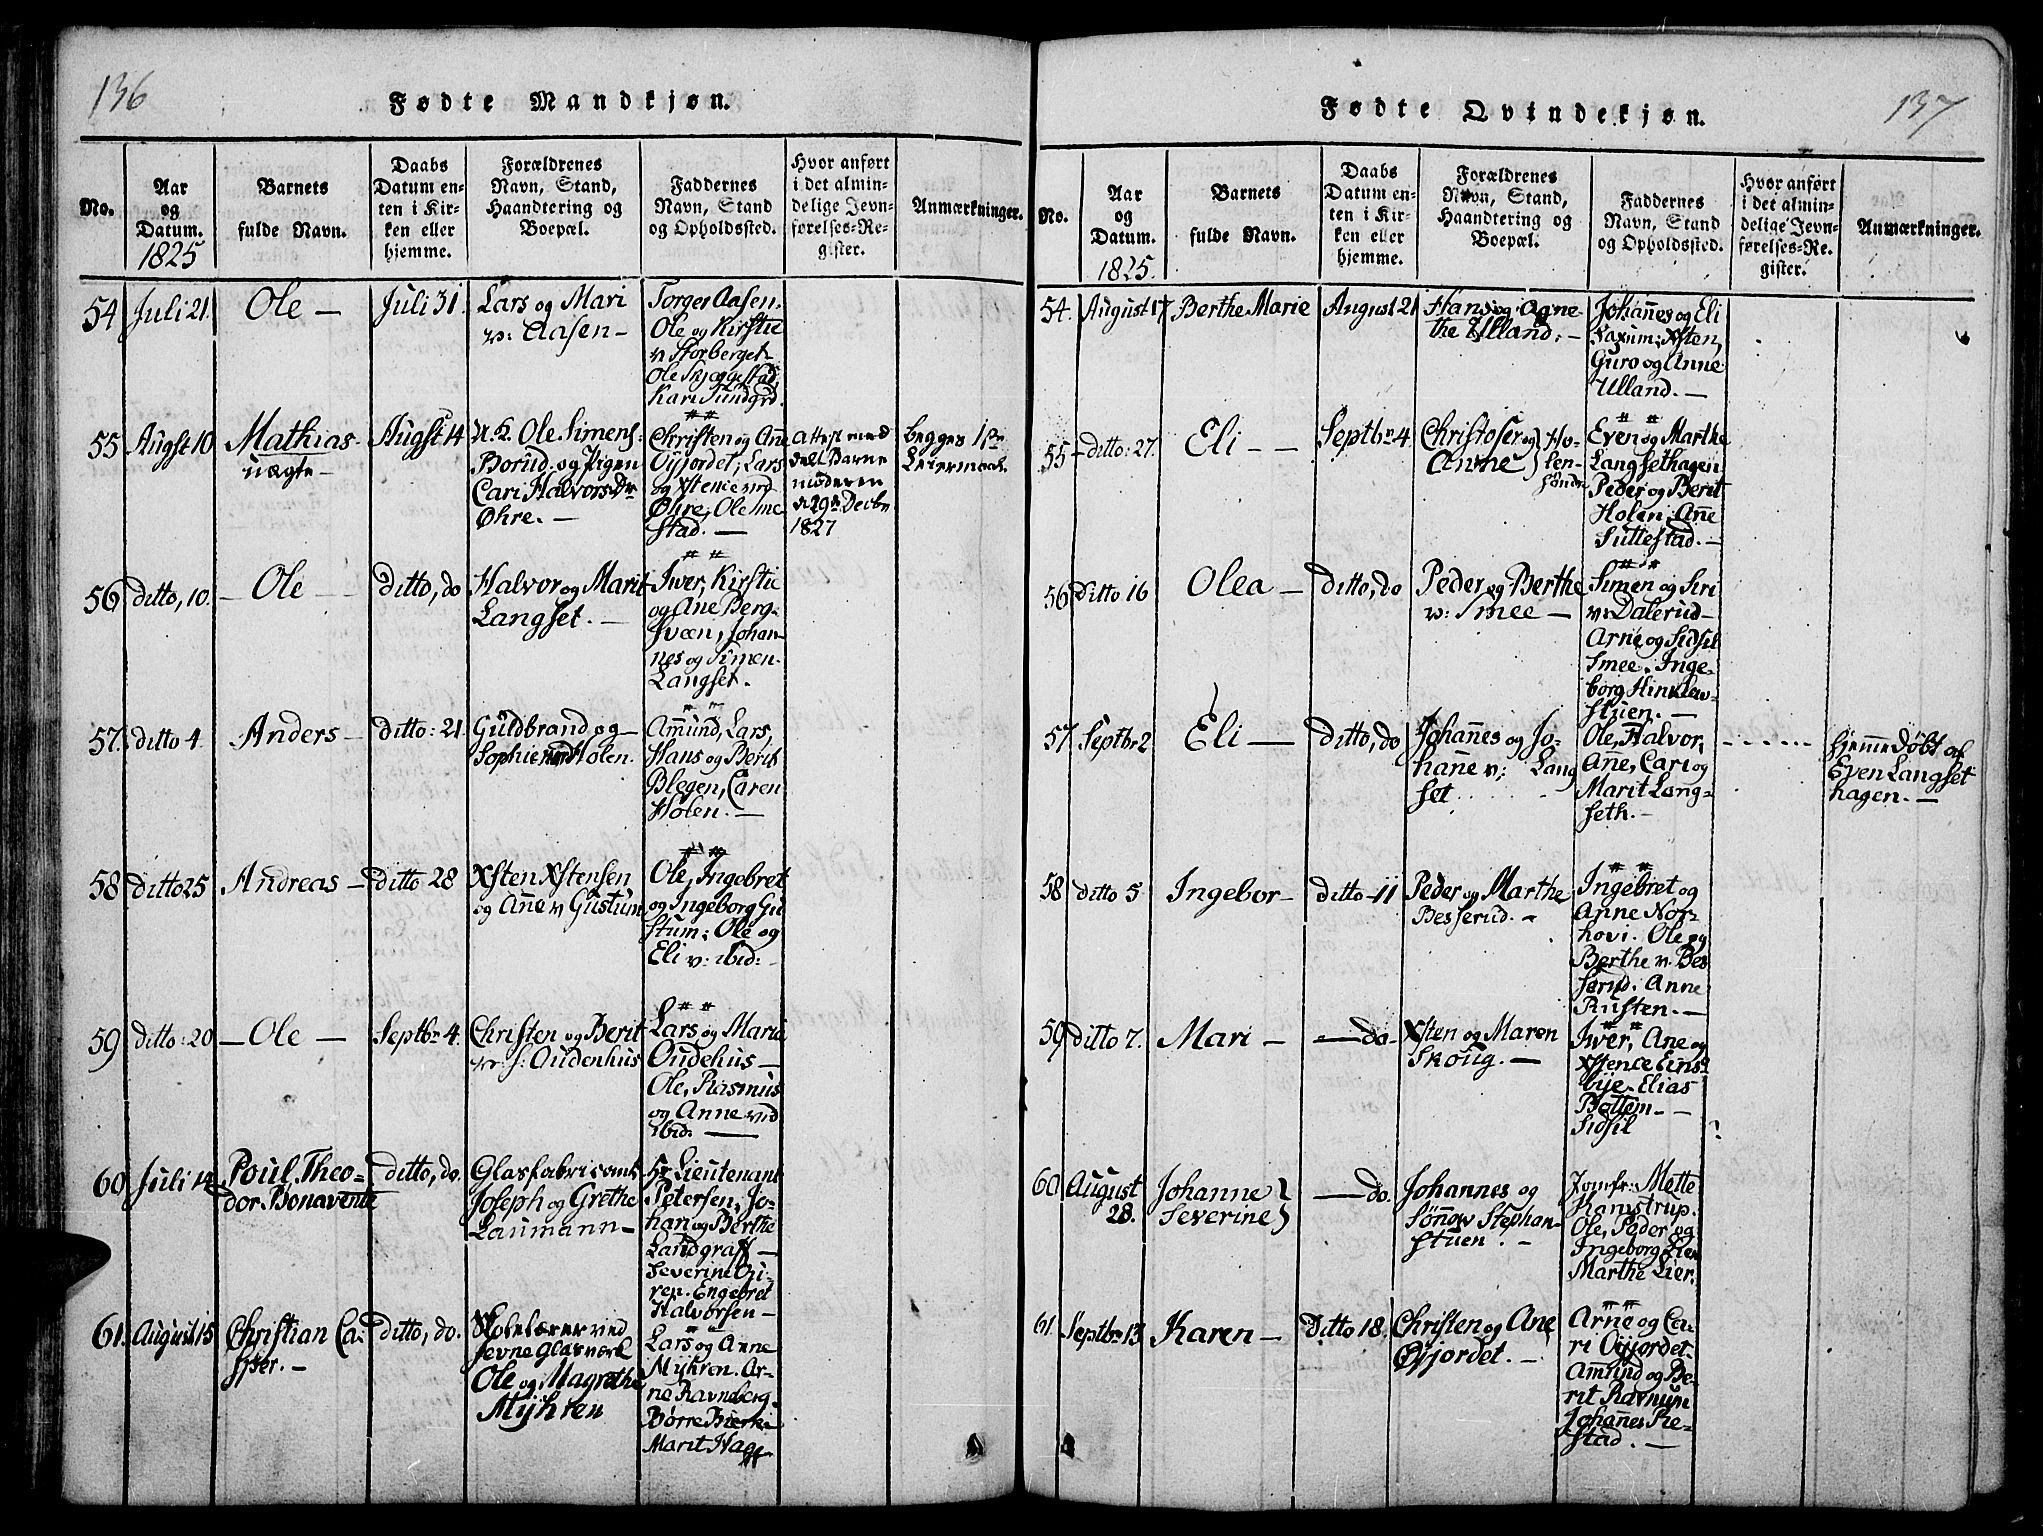 136
Fødte Mandkjøn.
No.
Aar
og
Datum.
1825
Barnets
fulde Navn.
Daabs
Datum en-
ten i Kir-
ken eller
hjemme.
Forældrenes
Navn, Stand,
Haandtering og
Boepæl.
Faddernes
Navn, Stand
og Opholdssted.
Hvor anført
i det almin-
delige Jevn-
førelses-Re-
gister.
Anmærkninger.
54 Juli 21. Ole — Juli 31.
Lars og Mari
v: Aasen —
Torger Aasen.
Ole og Kirstie
v Storberget
Ole Skjæggestad,
Kari Sundgrd.
55 Augst 10 Mathias
uægte — Augst 14
U.K. Ole Simens-
Borud og Pigen
Cari Halvors Dr
Øhre. —
Christen og Ane
Øyjordet, Lars
og Xstence vnd
Øhre, Ole Me
stad. —
Attest med
deelt Barne
moderen
d 29de Decbr
1827
begges 1ste
Leiermaal.
56 ditto, 10. — Ole — ditto, do
Halvor og Marit
Langset. —
Iver, Kirstie
og Ane Berg-
sveen, Johan-
nes og Simen
Langset.
57. ditto 4. Anders — ditto: 21.
Guldbrand og
Sophie vnd Holen.
Amund, Lars,
Hans og Berit
Blegen, Caren
Holen. —
58 ditto 25 Andreas — ditto 28
Xsten Xstensen
og Ane v Gustum
Ole, Ingebret
og Ingeborg Gu
stum; Ole og
Eli v: ibid:
59 ditto: 20 — Ole — Septbr 4.
Christen og Berit
v: S: Oudenhus
Lars og Maria
Oudehus —
Ole, Rasmus
og Anne vnd
ibid: —
60 Juli 14 Poul Theo-
dor Bonavente ditto, do.
Glasfabricant
Joseph og Grethe
Laumann —
Hr Lieutenant
Petersen, Jo-
han og Berthe
Landgraff —
Severine Gi-
ren. Engebret
Halvorsen —
61. August 15 Christian Ca-
sper. — ditto, do.
Skolelærer ved
Jevne Glasværk
Ole og Magrethe
Myhren
Lars og Anne
Myhren. Ar-
ne Ravneberg.
Børre Bierke
Marit Hage
137
Fødte Qvindekjøn.
No.
Aar
og
Datum.
1825.
Barnets
fulde Navn.
Daabs
Datum en-
ten i Kir-
ken eller
hjemme.
Forældrenes
Navn, Stand,
Haandtering og
Boepæl.
Faddernes
Navn, Stand
og Opholdssted.
Hvor anført
i det almin-
delige Jevn-
førelses-Re-
gister.
Anmærkninger.
54. August 17 Berthe Marie August 21
Hans og Agne-
the Ulland. —
Johannes og Eli
Saxum; Xsten,
Guro og Anne
Ulland. —
55 ditto: 27. Eli — — Septbr 4.
Christofer og
Anne } Ho-
len-
søndre
Even og Marthe
Langsethagen
Peder og Berit
Holen, Ane
Suttestad. —
56 Ditto 16 Olea — ditto, do
Peder og Berthe
v: Smee —
Simen og Siri
v: Dalerud
Arne og Sidsil
Smee. Inge-
borg Hinklev-
stuen. —
57 Septbr 2 Eli — ditto, do
Johannes og Jo-
hane v: Lang
set
Ole, Halvor,
Ane, Cari og
Marit Lang-
seth. —
hjemmedøbt af
Even Langset
hagen. —
58 ditto 5 Ingebor — ditto 11
Peder og Marthe
Besserud. —
Ingebret og
Anne Nor-
hovi. Ole og
Berthe v: Bes
serud. Anne
Rusten. —
59 ditto 7. Mari — — do.
Xsten og Maren
Skoug. —
Iver, Ane og
Xstence Eins-
bye. Elias
Bottem —
Sidsil
60 August
28. Johanne
Severine } — do.
Johannes og
Sønnov Stephan-
stuen. —
Jomfr: Mette
Kamstrup.
Ole, Peder og
Ingeborg Lier
Marthe Lier.
61. Septbr 13 Karen — Ditto 18.
Christen og Ane
Øyjordet. —
Arne og Ca-
ri Øyjordet.
Amund og Be-
rit Ravnum
Johanes Re-
stad. —